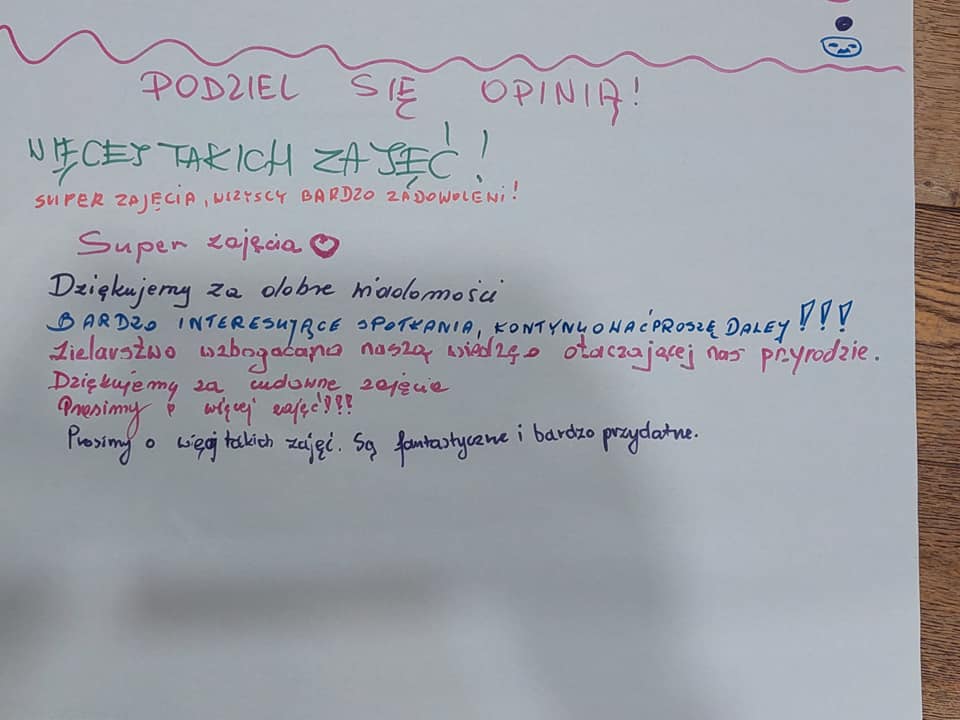 PODZIEL SIĘ OPINIĄ!
WIĘCEJ TAKICH ZAJĘĆ!
SUPER ZAJĘCIA, WSZYSCY BARDZO ZADOWOLENI!
Super zajęcia
Dziękujemy za dobre wiadomości
BARDZO INTERESUJĄCE SPOTKANIA, KONTYNUOWAĆ PROSZĘ DALEY!!!
Zielarstwo wzbogacana naszą wiedzę o otaczającej nas przyrodzie.
Dziękujemy za cudowne zajęcia
Prosimy o więcej zajęć!!!
Prosimy o więcej takich zajęć. Są fantastyczne i bardzo przydatne.